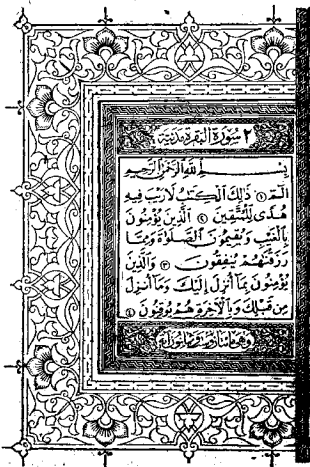 ٢ سُورَة البَقَرَة مَدَنِيَّة
بِسْمِ اللَّهِ الرَّحْمَٰنِ الرَّحِيمِ
الٓمٓ ١ ذَٰلِكَ الْكِتَٰبُ لَا رَيْبَ فِيهِ
هُدًى لِلْمُتَّقِينَ ٢ الَّذِينَ يُؤْمِنُونَ
بِالْغَيْبِ وَيُقِيمُونَ الصَّلَوٰةَ وَمِمَّا
رَزَقْنَٰهُمْ يُنْفِقُونَ ٣ وَالَّذِينَ
يُؤْمِنُونَ بِمَا أُنْزِلَ إِلَيْكَ وَمَا أُنْزِلَ
مِنْ قَبْلِكَ وَبِالْآخِرَةِ هُمْ يُوقِنُونَ ٤